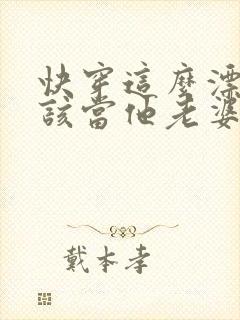 快穿這麼漂
該當他老婆
戴本孝